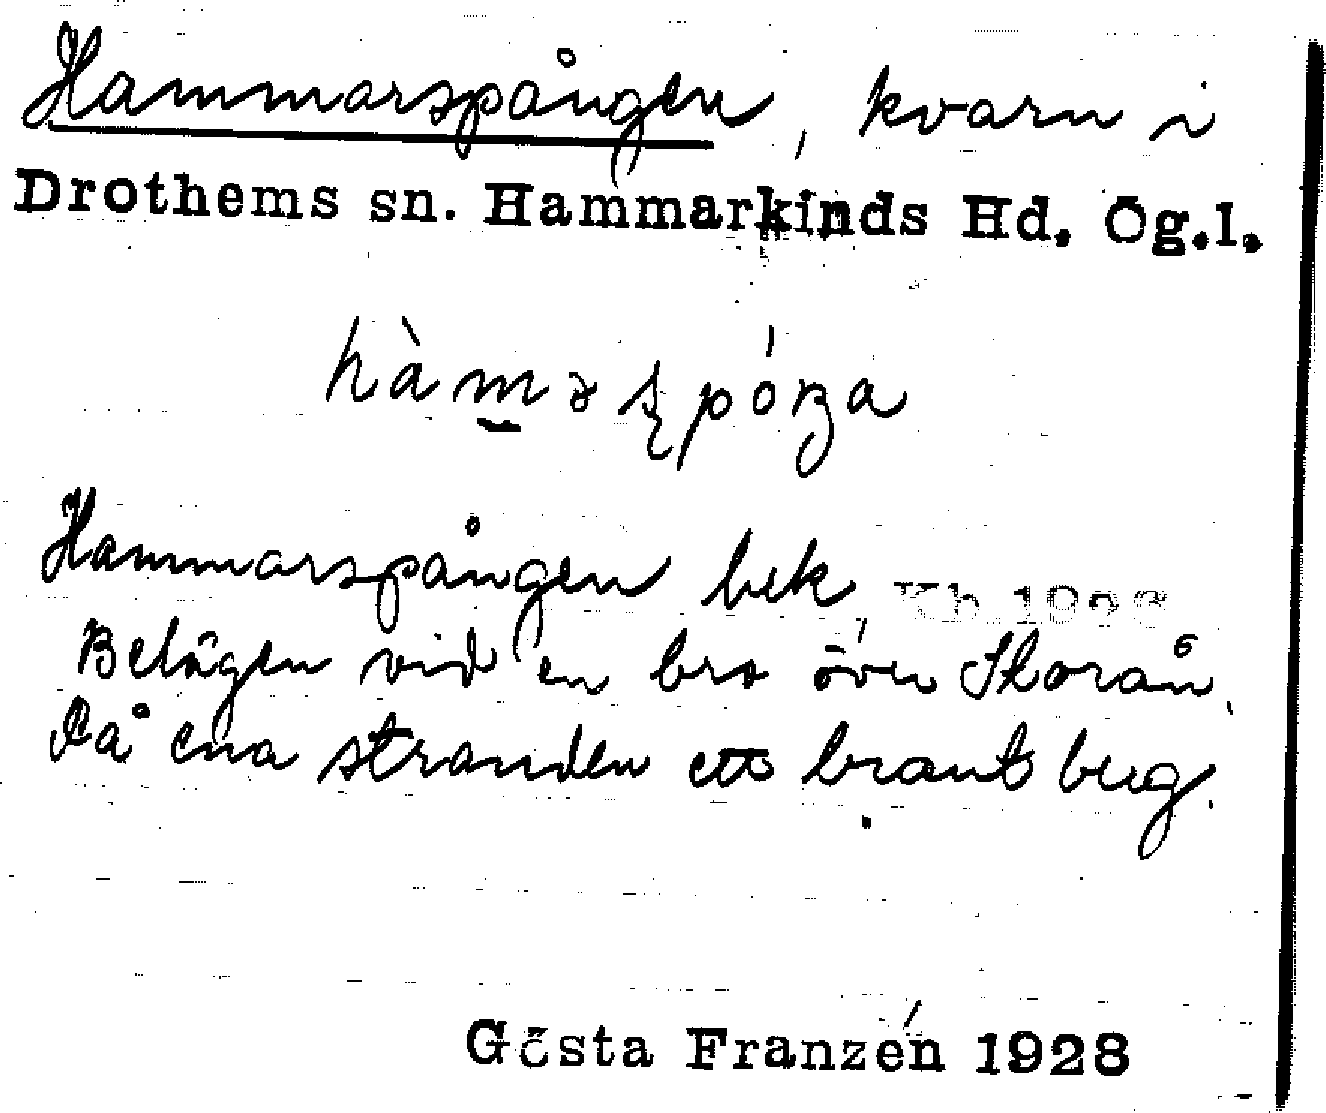 Hammarspången, kvarn i
Drothems sn. Hammarkinds Hd. Ög.l.
Hammarspången bek, Kb. 1928
Belägen vid en bro över Storån.
På ena stranden ett brant berg.
Gösta Franzén 1928